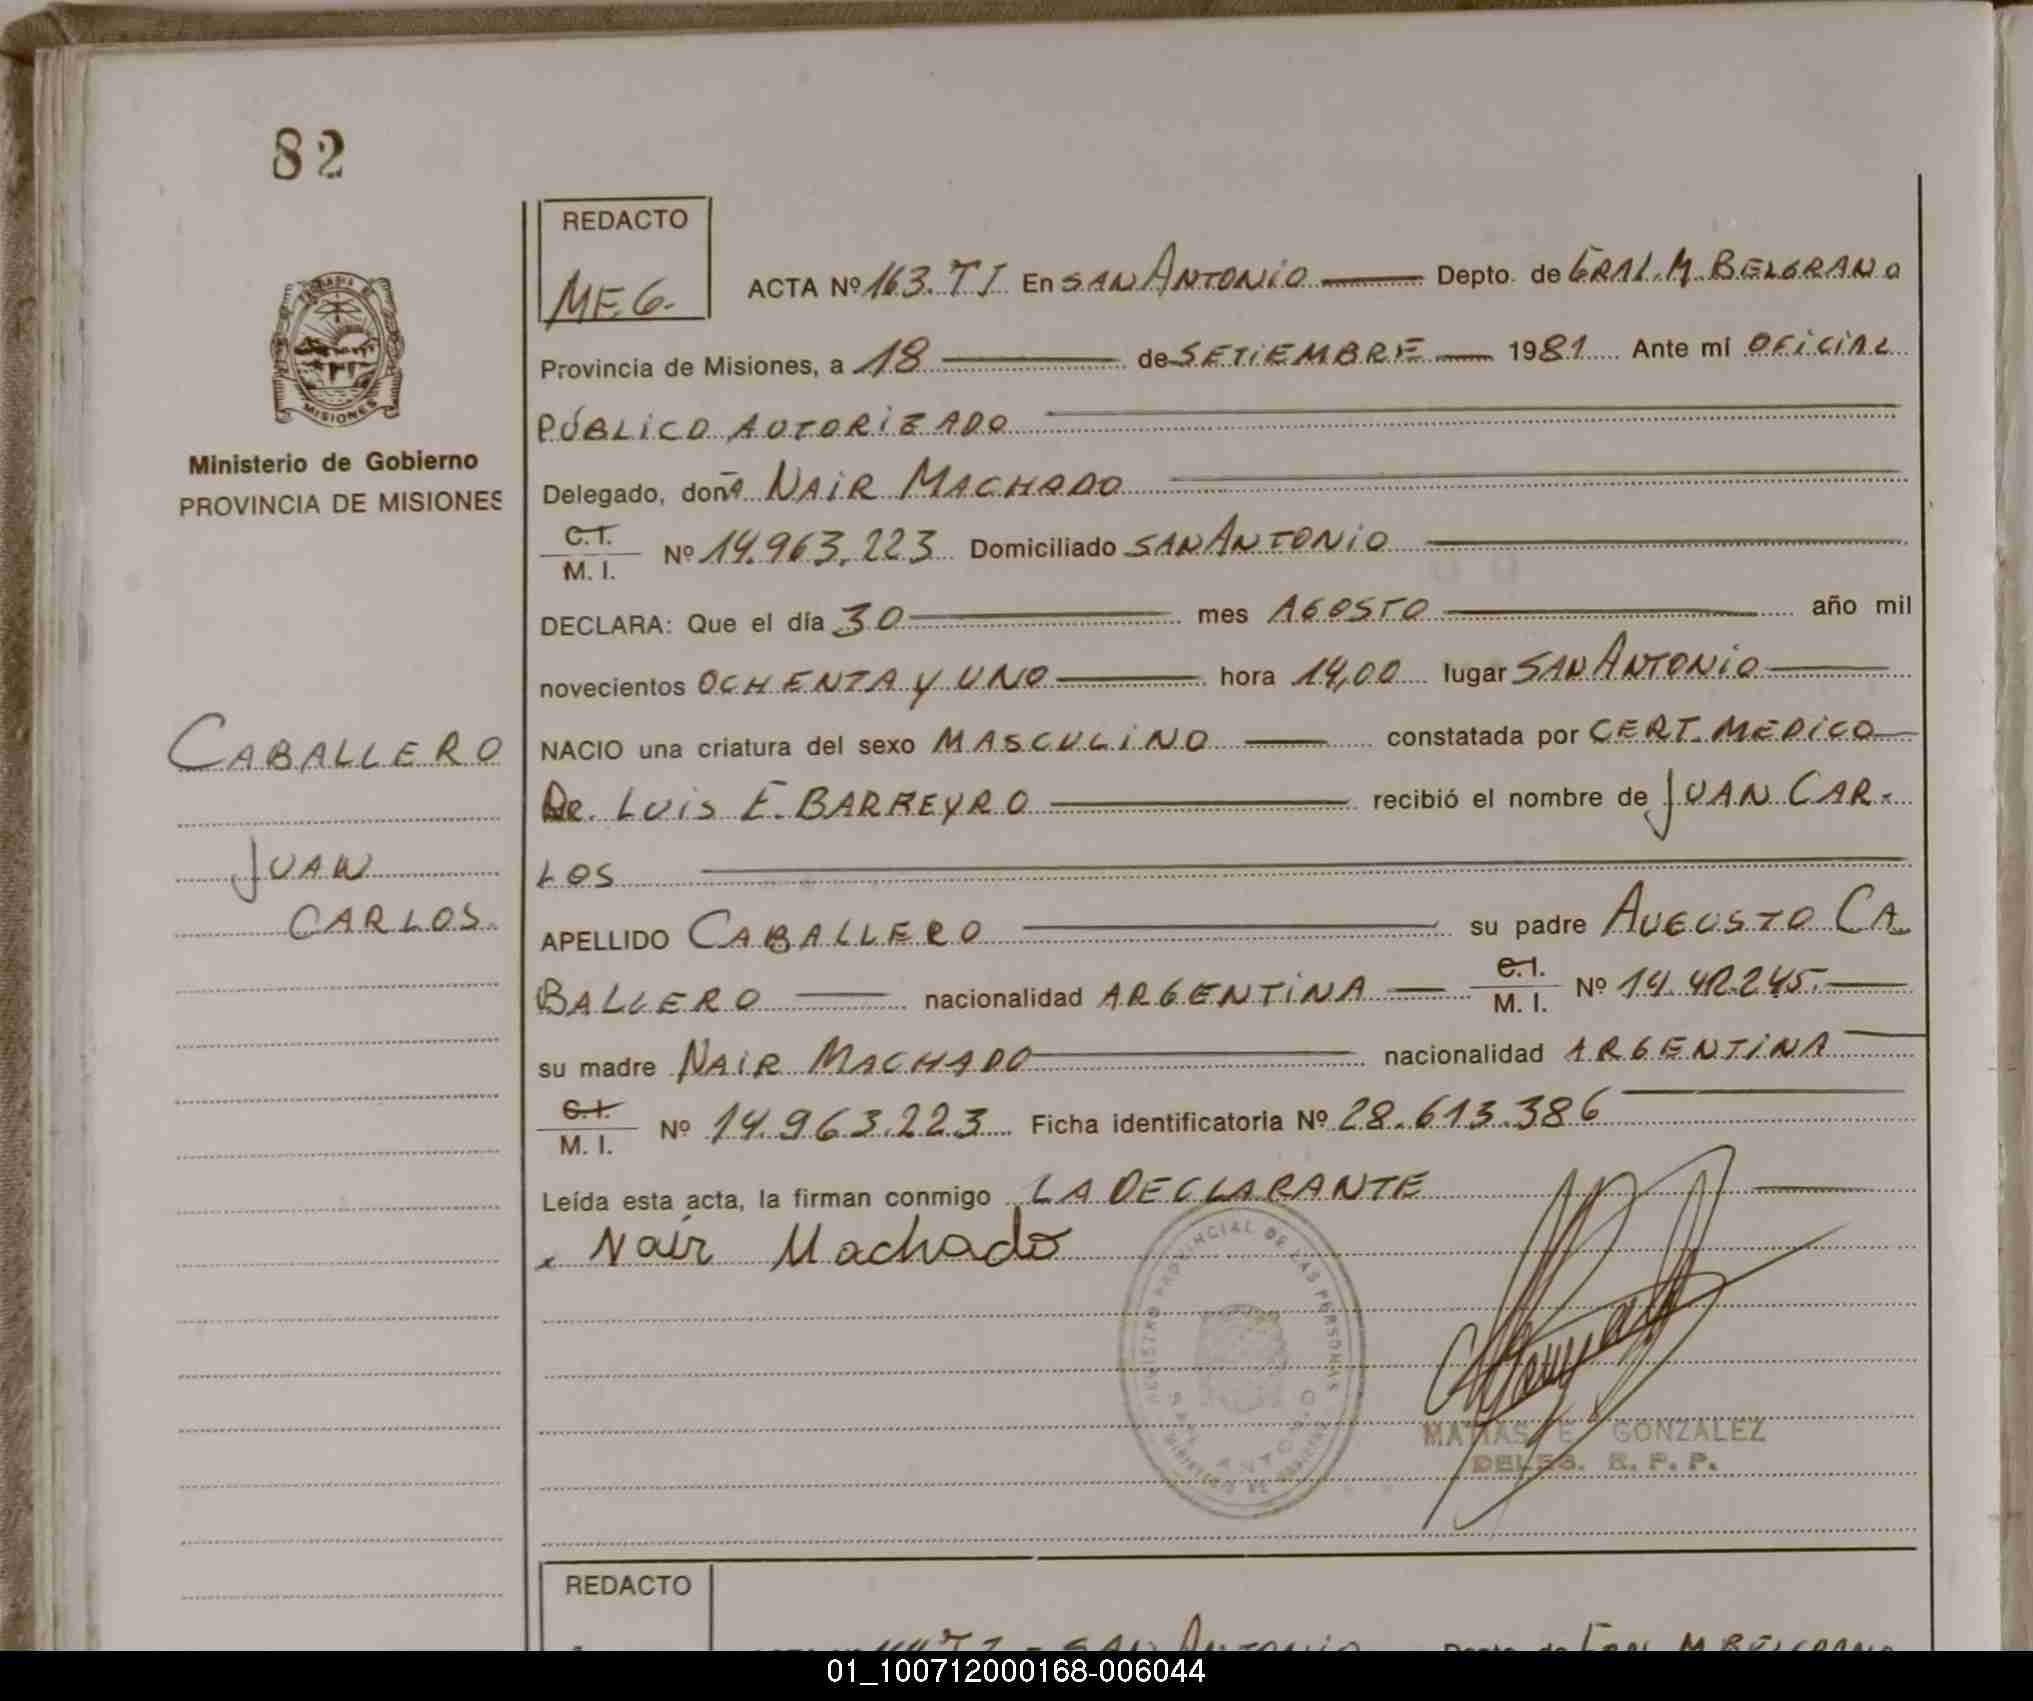 82
REDACTO
MEG.
ACTA Nº 163. TI En SAN ANTONIO Depto. de GRAL. M. BELGRANO
Provincia de Misiones, a 18 de SETIEMBRE 1981 Ante mí OFICIAL
PÚBLICO AUTORIZADO
Ministerio de Gobierno
PROVINCIA DE MISIONES
Delegado, doña NAIR MACHADO
C.I. M. I. Nº 14.963.223 Domiciliado SAN ANTONIO
DECLARA: Que el día 30 mes AGOSTO año mil
novecientos OCHENTA Y UNO hora 14,00 lugar SAN ANTONIO
CABALLERO
JUAN
CARLOS.
NACIO una criatura del sexo MASCULINO constatada por CERT. MEDICO
DR. LUIS E. BARREYRO recibió el nombre de JUAN CAR-
LOS
APELLIDO CABALLERO su padre AUGUSTO CA
BALLERO nacionalidad ARGENTINA C.I. M. I. Nº
su madre NAIR MACHADO nacionalidad ARGENTINA
C.I. M. I. Nº 14.963.223 Ficha identificatoria Nº 28.613.386
Leída esta acta, la firman conmigo LA DECLARANTE
x Nair Machado
REGISTRO PROVINCIAL DE LAS PERSONAS
SAN ANTONIO
MATIAS E. GONZALEZ
DELEG. R. P. P.
REDACTO
SAN ANTONIO Depto. de GRAL. M. BELGRANO
01_100712000168-006044